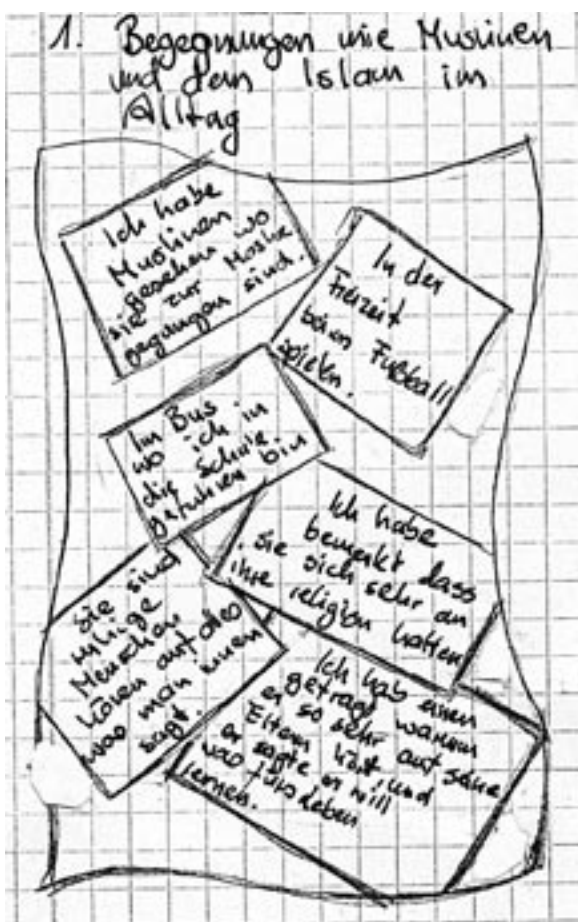 1. Begegnungen mie Muslimen
und dem Islam im
Alltag
Ich habe
Muslimen
gesehen wo
sie zur Moske
gegangen sind.
In der
Freizeit
beim Fußball
spielen.
Im Bus
wo ich in
die Schule
gefahren bin
Ich habe
bemerkt dass
sie sich sehr an
ihre religion halten
Sie sind
ruhige
Menschen
hören auf alles
was man innen
sagt.
Ich hab einen
gefragt warum
er so sehr auf seine
Eltern hört und
er sagte er will
was fürs Leben
lernen.